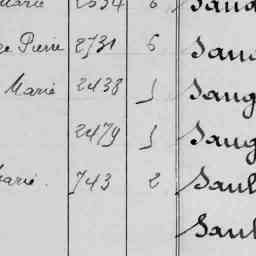 Marie 2554 6 Sang
Pierre 2731 6 Sang
Marie 2438 5 Sang
2479 5 Sang
Marie. 743 2 Saul
Saul